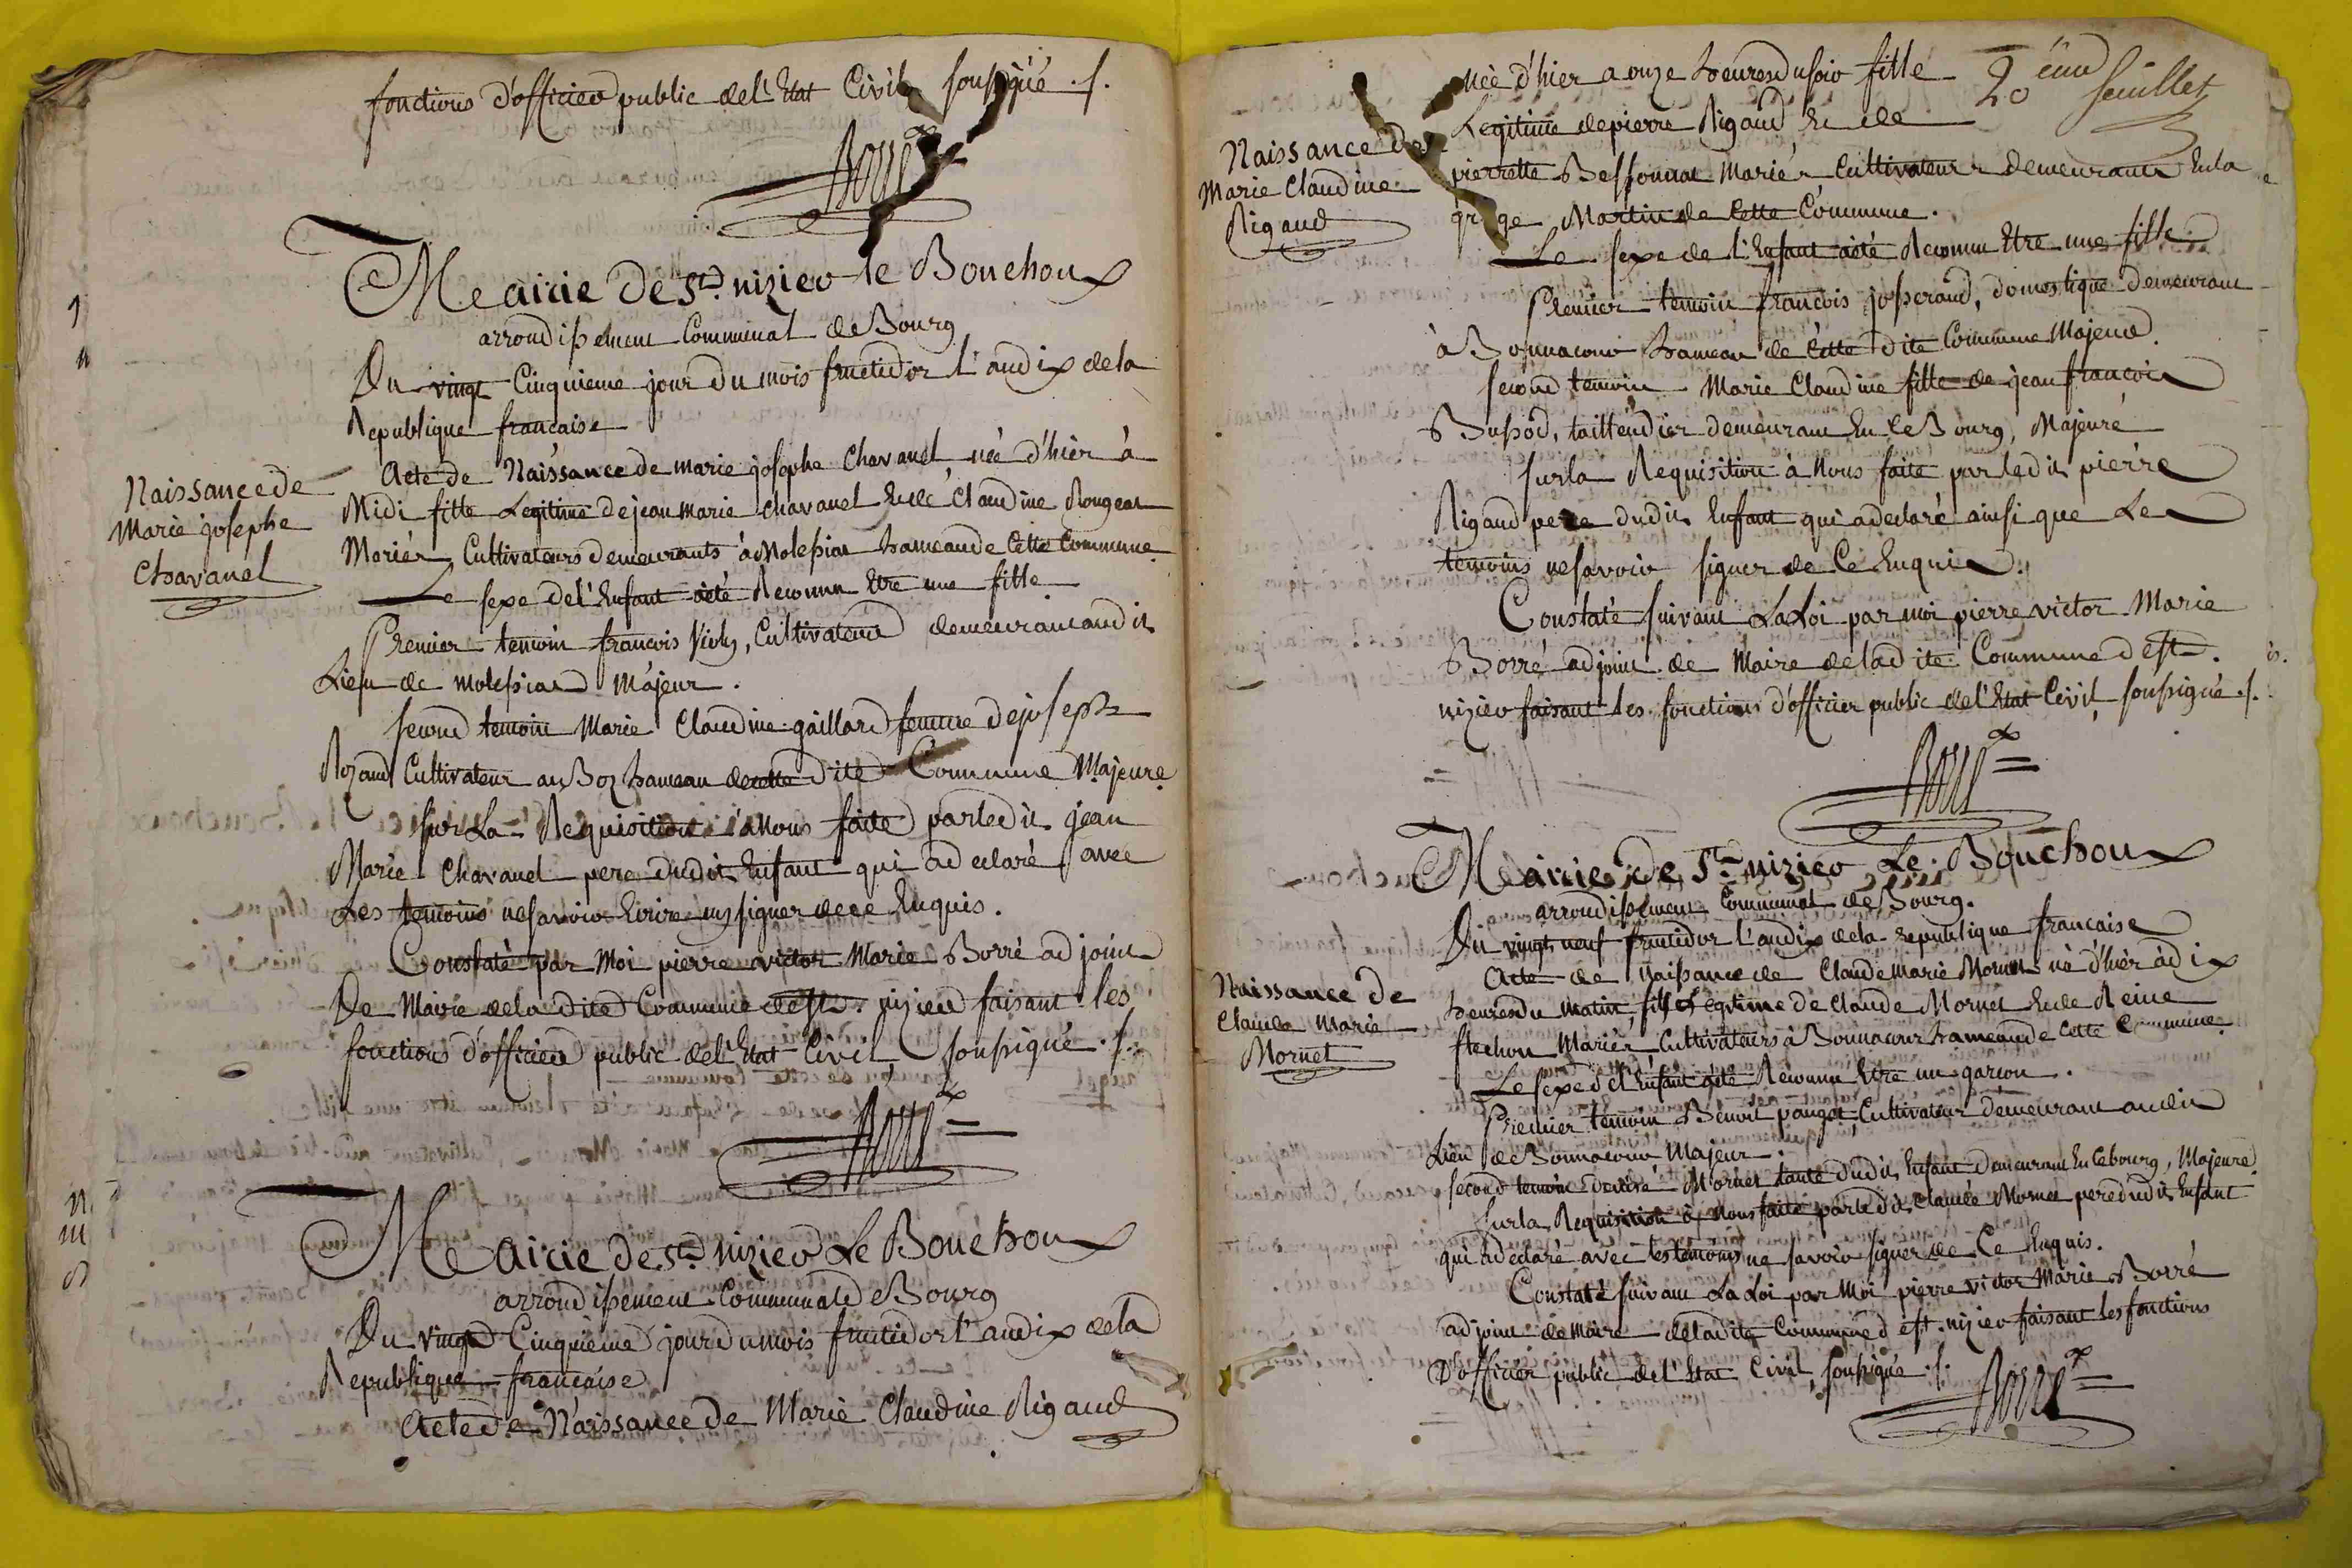 fonctions d'officier public de l'Etat Civil soussigné ./.
Borré
Meairie de St. nizier le Bouchoux
arrondissement Communal de Bourg
Du vingt Cinquieme jour du mois fructidor l'an dix de la
Republique francaise
Naissance de
Marie josephe
Chavanel
Acte de Naissance de marie josephe Chavanel, née d'hier à
Midi fille Legitime de jean marie Chavanel Et de Claudine Rongeat
Mariés, Cultivateurs demeurants à Molessiat hameau de Cette Commune
Le sexe de l'Enfant a été Reconnu Etre une fille
Premier temoin francois Vichy, Cultivateur demeurant audit
Lieu de molessiat Majeur.
second temoin Marie Claudine gaillard femme de joseph
Rozand Cultivateur au Boz hameau de cette dite Commune Majeure
sur La Requisition à Nous faite par ledit jean
Marie Chavanel pere dudit Enfant qui a declaré avec
Les temoins ne savoir Ecrire ny signer de ce Enquis.
Constaté par Moi pierre victor Marie Borré adjoint
De Maire de la dite Commune de st. nizier faisant les
fonctions d'officier public de l'Etat Civil soussigné ./.
Borré
Meairie de St. nizier Le Bouchoux
arrondissement Communal de Bourg
Du vingt Cinquieme jour du mois fructidor l'an dix de la
Republique francaise
Acte de Naissance de Marie Claudine Rigaud
20 eme feuillet
née d'hier a onze heures du soir fille
Naissance de
Marie Claudine
Rigaud
Legitime de pierre Rigaud Et de
pierrette Bessonnat Mariés Cultivateurs Demeurants En la
grange Martin de Cette Commune.
Le sexe de l'Enfant a été Reconnu Etre une fille
Premier temoin francois josserand, domestique demeurant
à Bonnacour hameau de Cette dite Commune Majeur
second temoin Marie Claudine fille de jean francois
Bussod, taillendier demeurant En ce Bourg, Majeure
sur la Requisition à Nous faite par ledit pierre
Rigaud pere dudit Enfant qui a declaré ainsi que Les
temoins ne savoir signer de Ce Enquis.
Constaté suivant La Loi par moi pierre victor Marie
Borré adjoint de Maire de la dite Commune de st.
nizier faisant les fonctions d'officier public de l'Etat Civil soussigné ./.
Borré
Meairie de St. nizier Le Bouchoux
arrondissement Communal de Bourg.
Du vingt neuf fructidor l'an dix de la republique francaise
Naissance de
Claude Marie
Mornet
Acte de Naissance de Claude marie Mornet né d'hier à dix
heures du matin fils Legitime de Claude Mornet Et de Reine
flechon Mariés, Cultivateurs à Bonnacour hameau de Cette Commune
Le sexe de l'Enfant a été Reconnu Etre un garcon.
Premier temoin Benoit pauget Cultivateur demeurant audit
Lieu de Bonnacour Majeur.
second temoin Mornet tante dudit Enfant demeurant En Ce bourg, Majeure
sur la Requisition à Nous faite par ledit Claude Mornet pere dudit Enfant
qui a declaré avec les temoins ne savoir signer de Ce Enquis.
Constaté suivant La Loi par Moi pierre victor Marie Borré
adjoint de maire de la dite Commune de st. nizier faisant les fonctions
D'officier public de l'Etat Civil, soussigné ./.
Borré